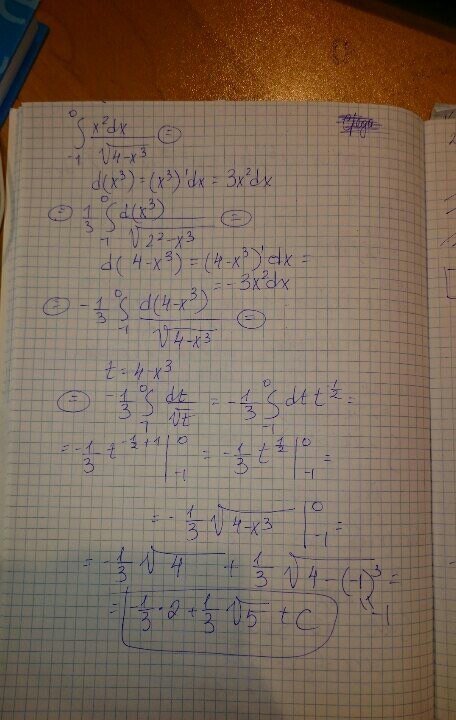 ∫_{-1}^{0} x²dx / √(4-x³) (=)
d(x³) = (x³)'dx = 3x²dx
(=) 1/3 ∫_{-1}^{0} d(x³) / √(2²-x³) (=)
d(4-x³) = (4-x³)'dx =
= -3x²dx
(=) -1/3 ∫_{-1}^{0} d(4-x³) / √(4-x³) (=)
t = 4-x³
(=) -1/3 ∫_{-1}^{0} dt/√t = -1/3 ∫_{-1}^{0} dt t^{-1/2} =
= -1/3 t^{-1/2+1} |_{-1}^{0} = -1/3 t^{1/2} |_{-1}^{0} =
= -1/3 √(4-x³) |_{-1}^{0} =
= -1/3 √4 + 1/3 √(4-(-1)³) =
-1
= -1/3 · 2 + 1/3 √5 + C